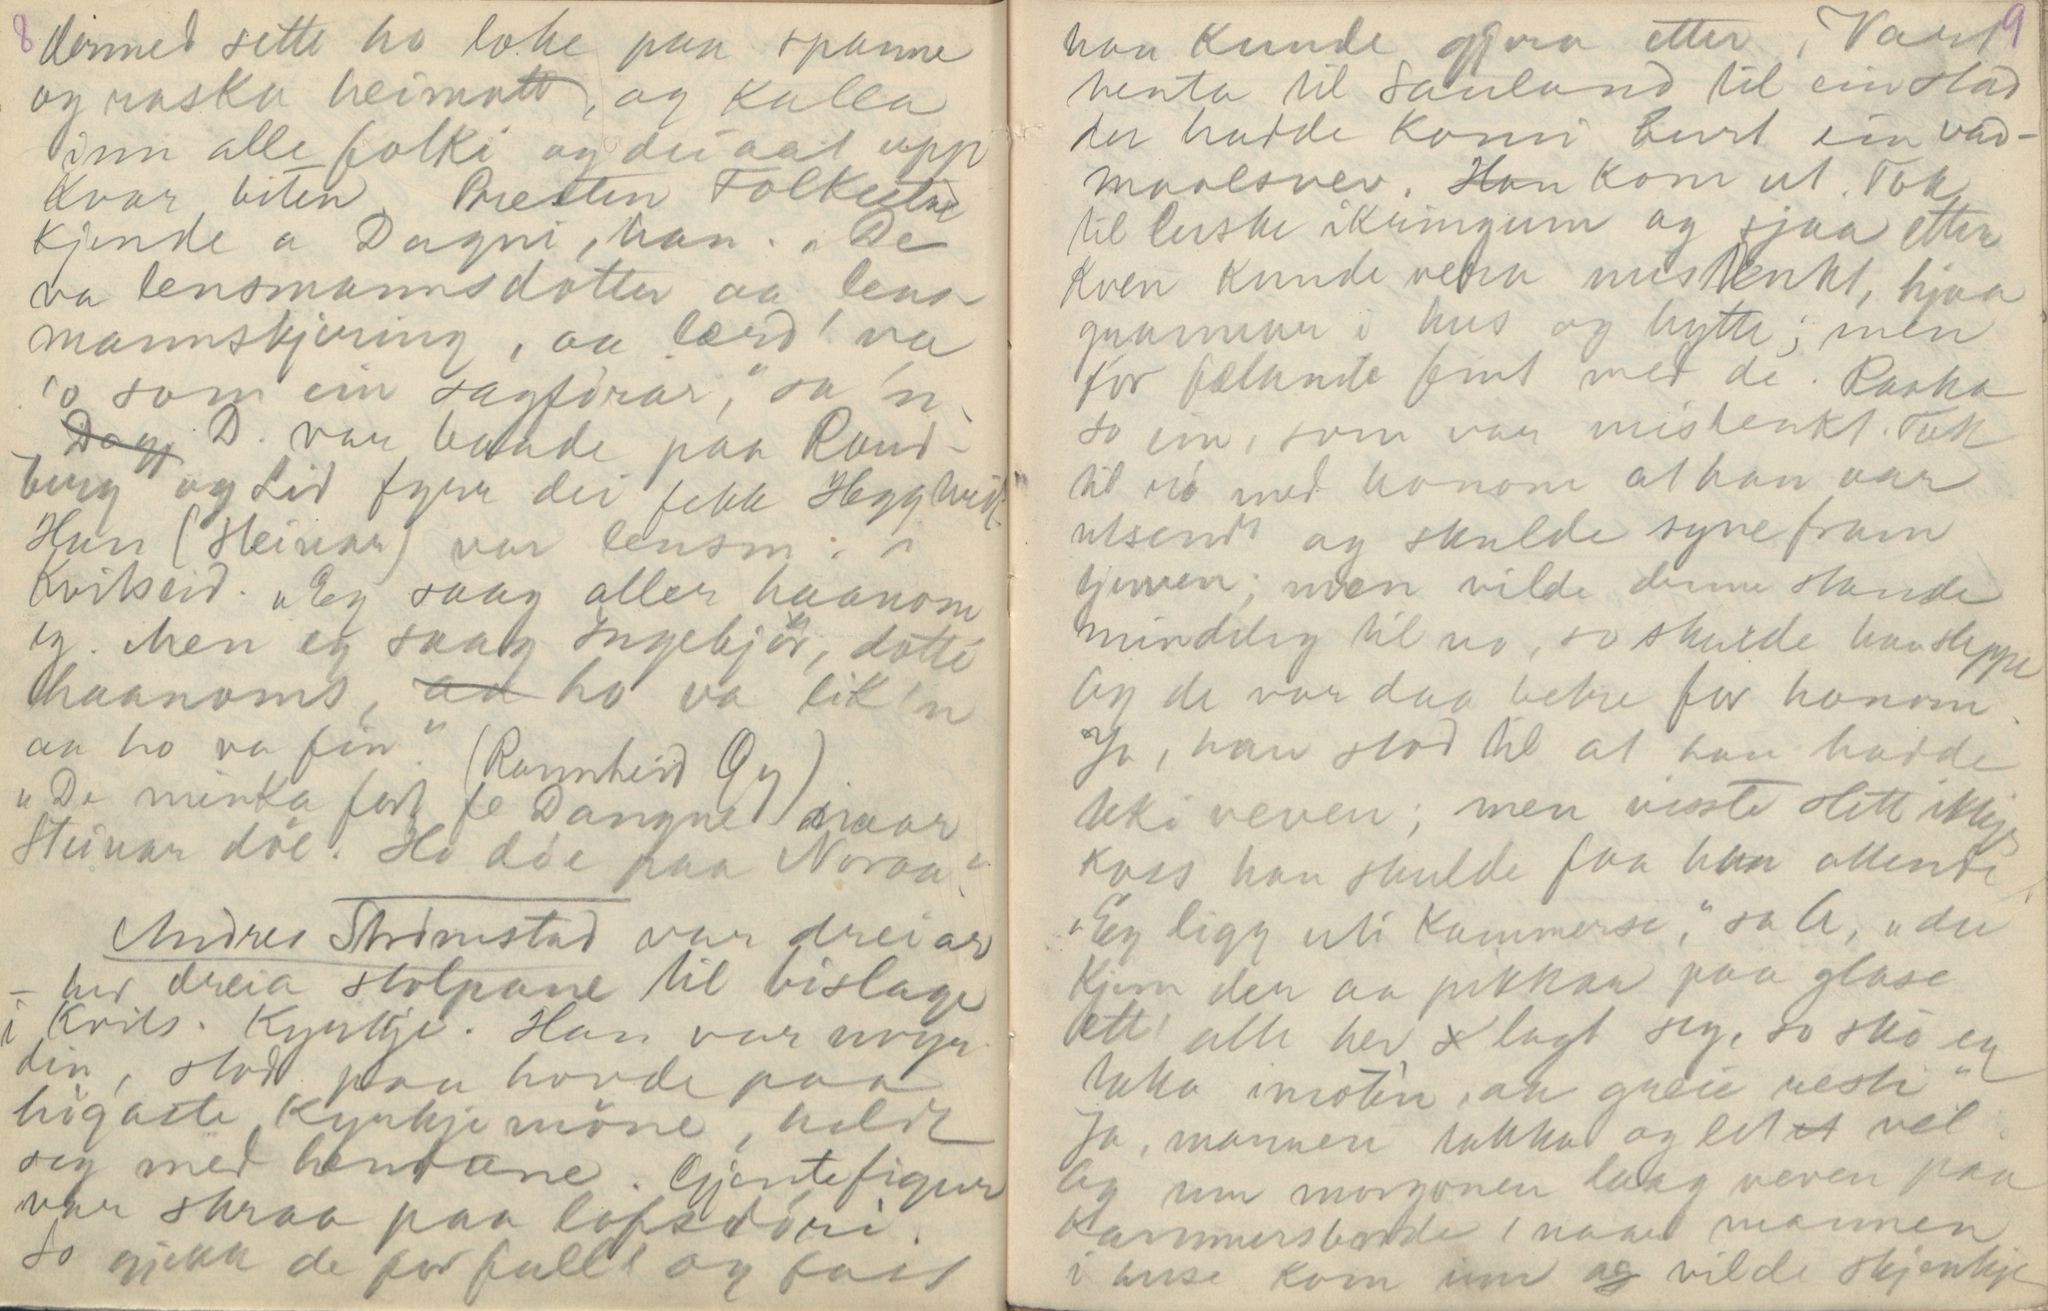 8
dermed sette ho loke paa spanne
og raska heimatt, og kalla
inn alle folki og dei aat upp
kvar biten. Presten Folkestad
kjende a Dagni, han. "De
va lensmannsdotter aa lens-
mannskjering, aa lærd' va
'o som ein sagförar," sa 'n.
Dagj D. var baade paa Rand-
berg og Lid fyrr dei fekk
Han (Steinar) var lensm. i
Kvitseid. "Eg saag aller haanom
eg. Men eg saag Ingebjör, dotte
haanoms, aa ho va lik 'n
aa ho va fin." (Rannheid Öy)
"De minka fort fe Dangne naar
Steinar döe. Ho döe paa Noraa."
Andres Strömstad var dreiar
- hev dreia stolpane til bislage
i Kvits. Kyrkje. Han var
din, stod paa hovde paa
högaste Kyrkjemöne, heldt
seg med hendane. Gjentefigur
var skraa paa loftsdöri.
So gjekk de for fullt og fast
9
han kunde gjera etter, Vart
henta til Sauland til ein stad
der hadde komi burt ein vad-
maalsvev. Han kom ut. Tok
til luske ikringum og sjaa etter
kven kunde vera mistenkt, hjaa
grannar i hus og hytte; men
for fælande fint med de. Raska
so ein, som var mistenkt. Tok
til rö med honom at han var
utsend' og skulde syne fram
tjuven; men vilde denne stande
mindeleg til no, so skulde han sleppe
og de var daa betre for honom.
Ja, han stod til at han hadde
teki veven; men visste slett ikkje
koss han skulde faa han attende
"Eg ligg uti Kammerse," sa A, "du
kjem der aa pikkar paa glase
ette alle hev x lagt seg, so sko eg
taka imot'n, aa greie resti"
Ja, mannen takka og let et vel.
Og um morgonen laag veven paa
kammersborde, naar mannen
i huse kom inn og vilde skjenkje